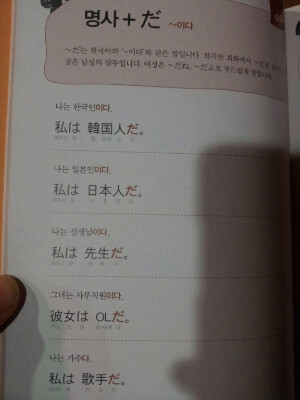 명사+だ ~이다
~だ는 한국어의 '~이다'와 같은 말입니다. 하지만 회화에서 ~だ
상은 남성의 말투입니다. 여성은 ~だね、~だよ로 부드럽게 말합니다.
나는 한국인이다.
私は 韓国人だ。
나는 일본인이다.
私は 日本人だ。
나는 선생님이다.
私は 先生だ。
그녀는 사무직원이다.
彼女は OLだ。
나는 가수다.
私は 歌手だ。